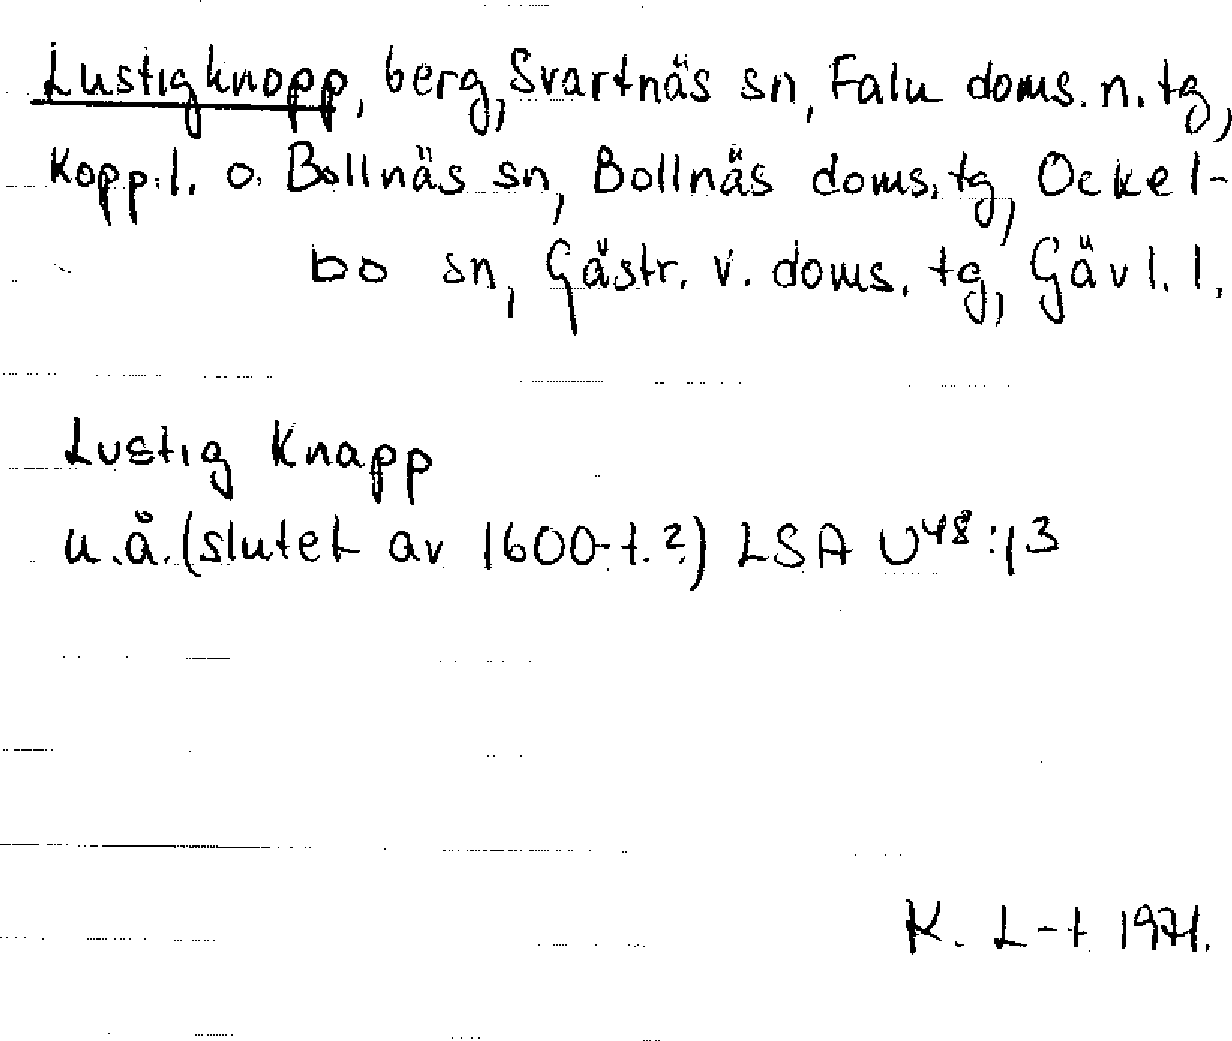 Lustigknopp, berg, Svartnäs sn, Falu doms. n. tg,
Kopp.l. o. Bollnäs sn, Bollnäs doms. tg, Ockel-
bo sn, Gästr. v. doms. tg, Gävl. l.
Lustig Knapp
u.å. (slutet av 1600-t.?) LSA U48:13
K. L-t 1971.